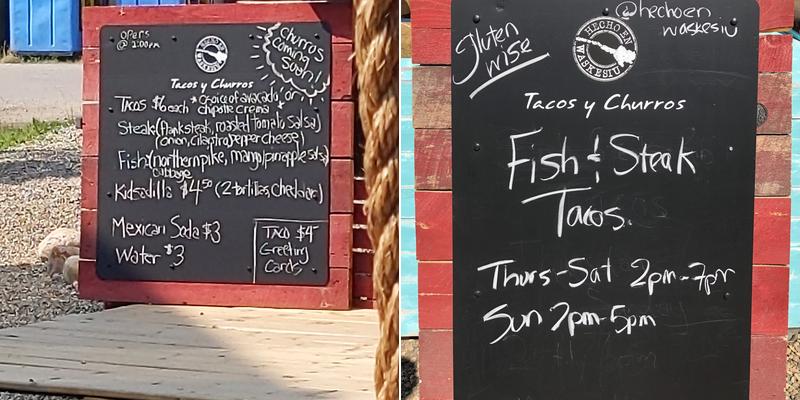 OPENS
@ 2:00PM
Churros
Coming
Soon!
HECHO EN
WASKESIU
Tacos y Churros
Tacos $6 each * choice of avacado or
chipotle crema *
Steak (flank steak, roasted tomato salsa)
(onion, cilantro, pepper cheese)
Fish (northern pike, mango/pineapple salsa)
cabbage
Kidsadilla $4.50 (2 tortillas, Chedar)
Mexican Soda $3
Water $3
TACO $4
Greeting
Cards
Gluten
wise
@hechoen
waskesiu
HECHO EN
WASKESIU
Tacos y Churros
Fish & Steak
Tacos.
Thurs-Sat 2pm-7pm
Sun 2pm-5pm